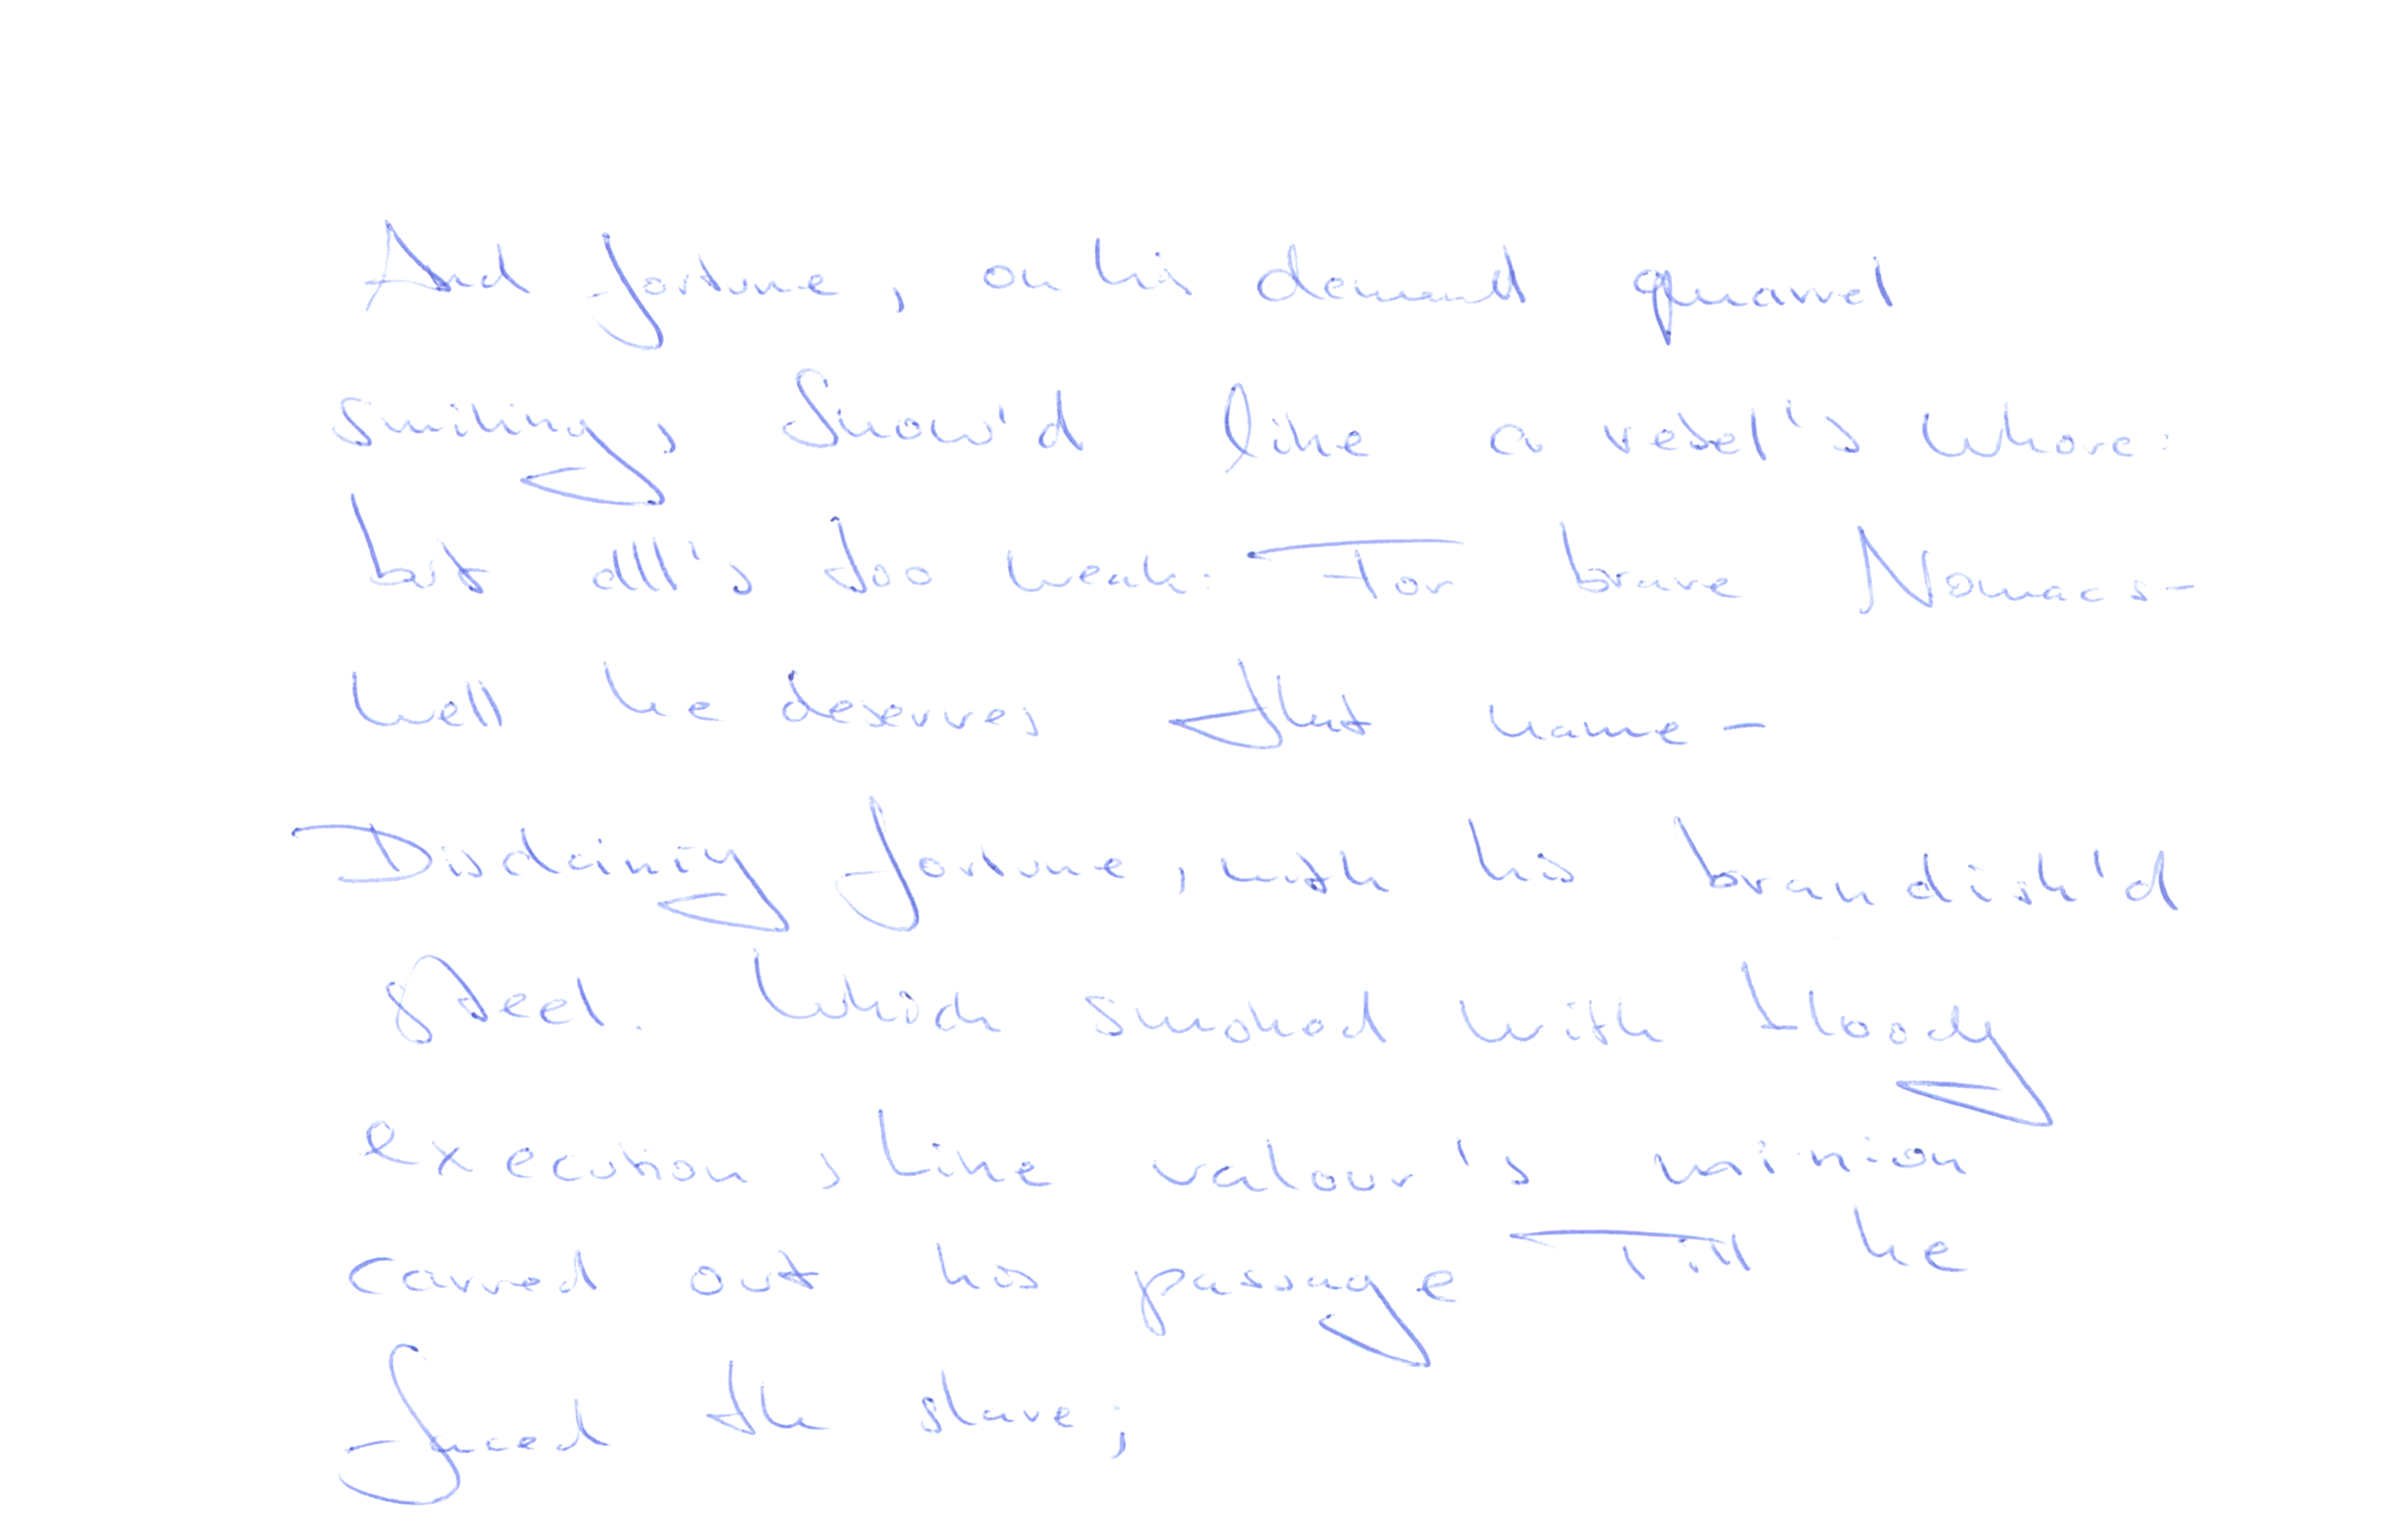 And fortune, on his demand quarrel
smiling, Show'd like a rebel's whore:
but all's too weak: For brave Nomacs-
well he deserves that name-
Disdaining fortune, with his brandish'd
Steel. Which smoked with bloody
execution, like valour's minion
carved out his passage Till he
faced the slave;